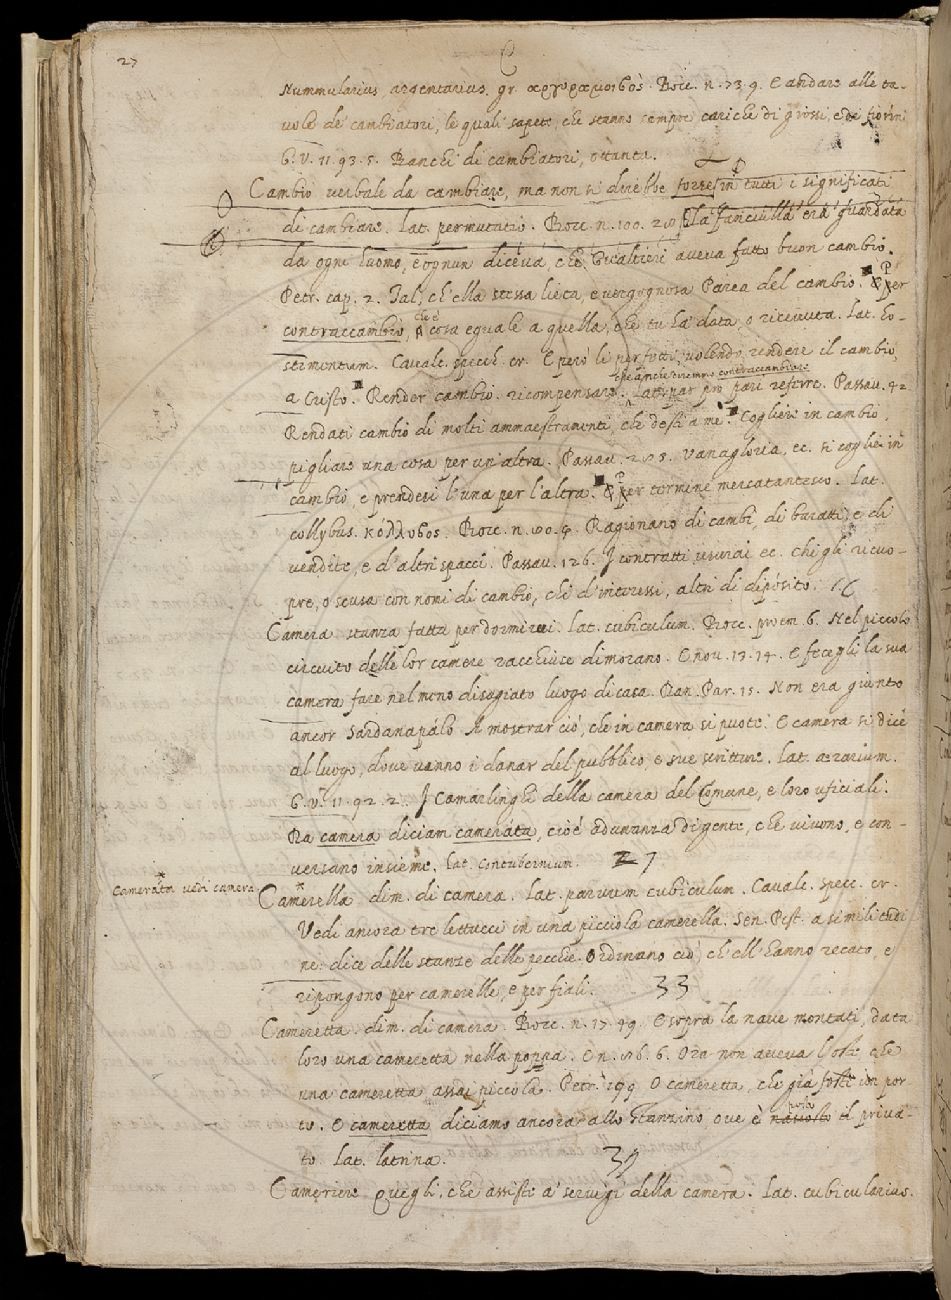 27
C
Nummularius, argentarius. gr. αργυραμοιβὸς. Bocc. n. 73. 9. E andare alle ta-
vole de' cambiatori, le quali sapete, che stanno sempre cariche di grossi, e de' fiorini
G. V. 11. 93. 5. Banchi di cambiatori, ottanta.
Cambio verbale da cambiare, ma non si direbbe forse in tutti i significati
di cambiare. Lat. permutatio. Bocc. n. 100. La fanciulla era guardata
da ogni huomo, e ognun diceva, che Gualtieri aveva fatto buon cambio.
Petr. cap. 2. Tal, ch'ella stessa lieta, e vergognosa Parea del cambio. per
contraccambio, cioè cosa eguale a quella, che tu ha' data, o ricevuta. Lat. ho-
stimentum. Cavalc. specch. cr. E però li perfetti volendo rendere il cambio
che anche diremmo contraccambiare
a Cristo. Render cambio. ricompensare. Lat. par pro pari referre. Passav. 42
Rendati cambio di molti ammaestramenti, che desti a me. Cogliere in cambio,
pigliare una cosa per un'altra. Passav. Vanagloria, ec. si coglie in
cambio, e prendesi l'una per l'altra. per termine mercatantesco. Lat.
collybus. κόλλυβος. Bocc. n. 80. 4. Ragionano di cambi, di baratti, e di
vendite, e d'altri spacci. Passav. 126. I contratti usurai ec. chi gli ricuo-
pre, o scusa con nomi di cambio, chi d'interessi, altri di diposito.
Camera stanza fatta per dormirvi. Lat. cubiculum. Bocc. proem. 6. Nel piccolo
circuito delle lor camere racchiuse dimorano. E nov. 13. 14. E fecegli la sua
camera fare nel meno disagiato luogo di casa. Dan. Par. 15. Non era giunto
ancor Sardanapálo A mostrar ciò, che in camera si puote. E camera si dice
al luogo, dove vanno i danar del pubblico, e sue scritture. Lat. aerarium.
G. V. 11. 92. 2. I Camarlinghi della camera del Comune, e loro uficiali.
Da camera diciam camerata, cioè adunanza di gente, che vivono, e con-
versano insieme. Lat. contubernium. 27
Camerata vedi camera
Camerella dim. di camera. Lat. parvum cubiculum. Cavalc. specc. cr.
Vedi ancora tre lettucci in una picciola camerella. Sen. Pist. a similitudi
ne dice delle stanze delle pecchie. Ordinano ciò, ch'ell'hanno recato, e
ripongono per camerelle, e per fiali. 33
Cameretta. dim. di camera. Bocc. n. 17. 49. E sopra la nave montati, data
loro una cameretta nella poppa. E n. 6. Ora non aveva l'oste, che
una cameretta assai piccola. Petr. 199. O cameretta, che già fosti un por-
to. E cameretta diciamo ancora allo stanzino ove è posto il priva-
to. Lat. latrina.
Cameriere Quegli, che assiste a' servigi della camera. Lat. cubicularius.